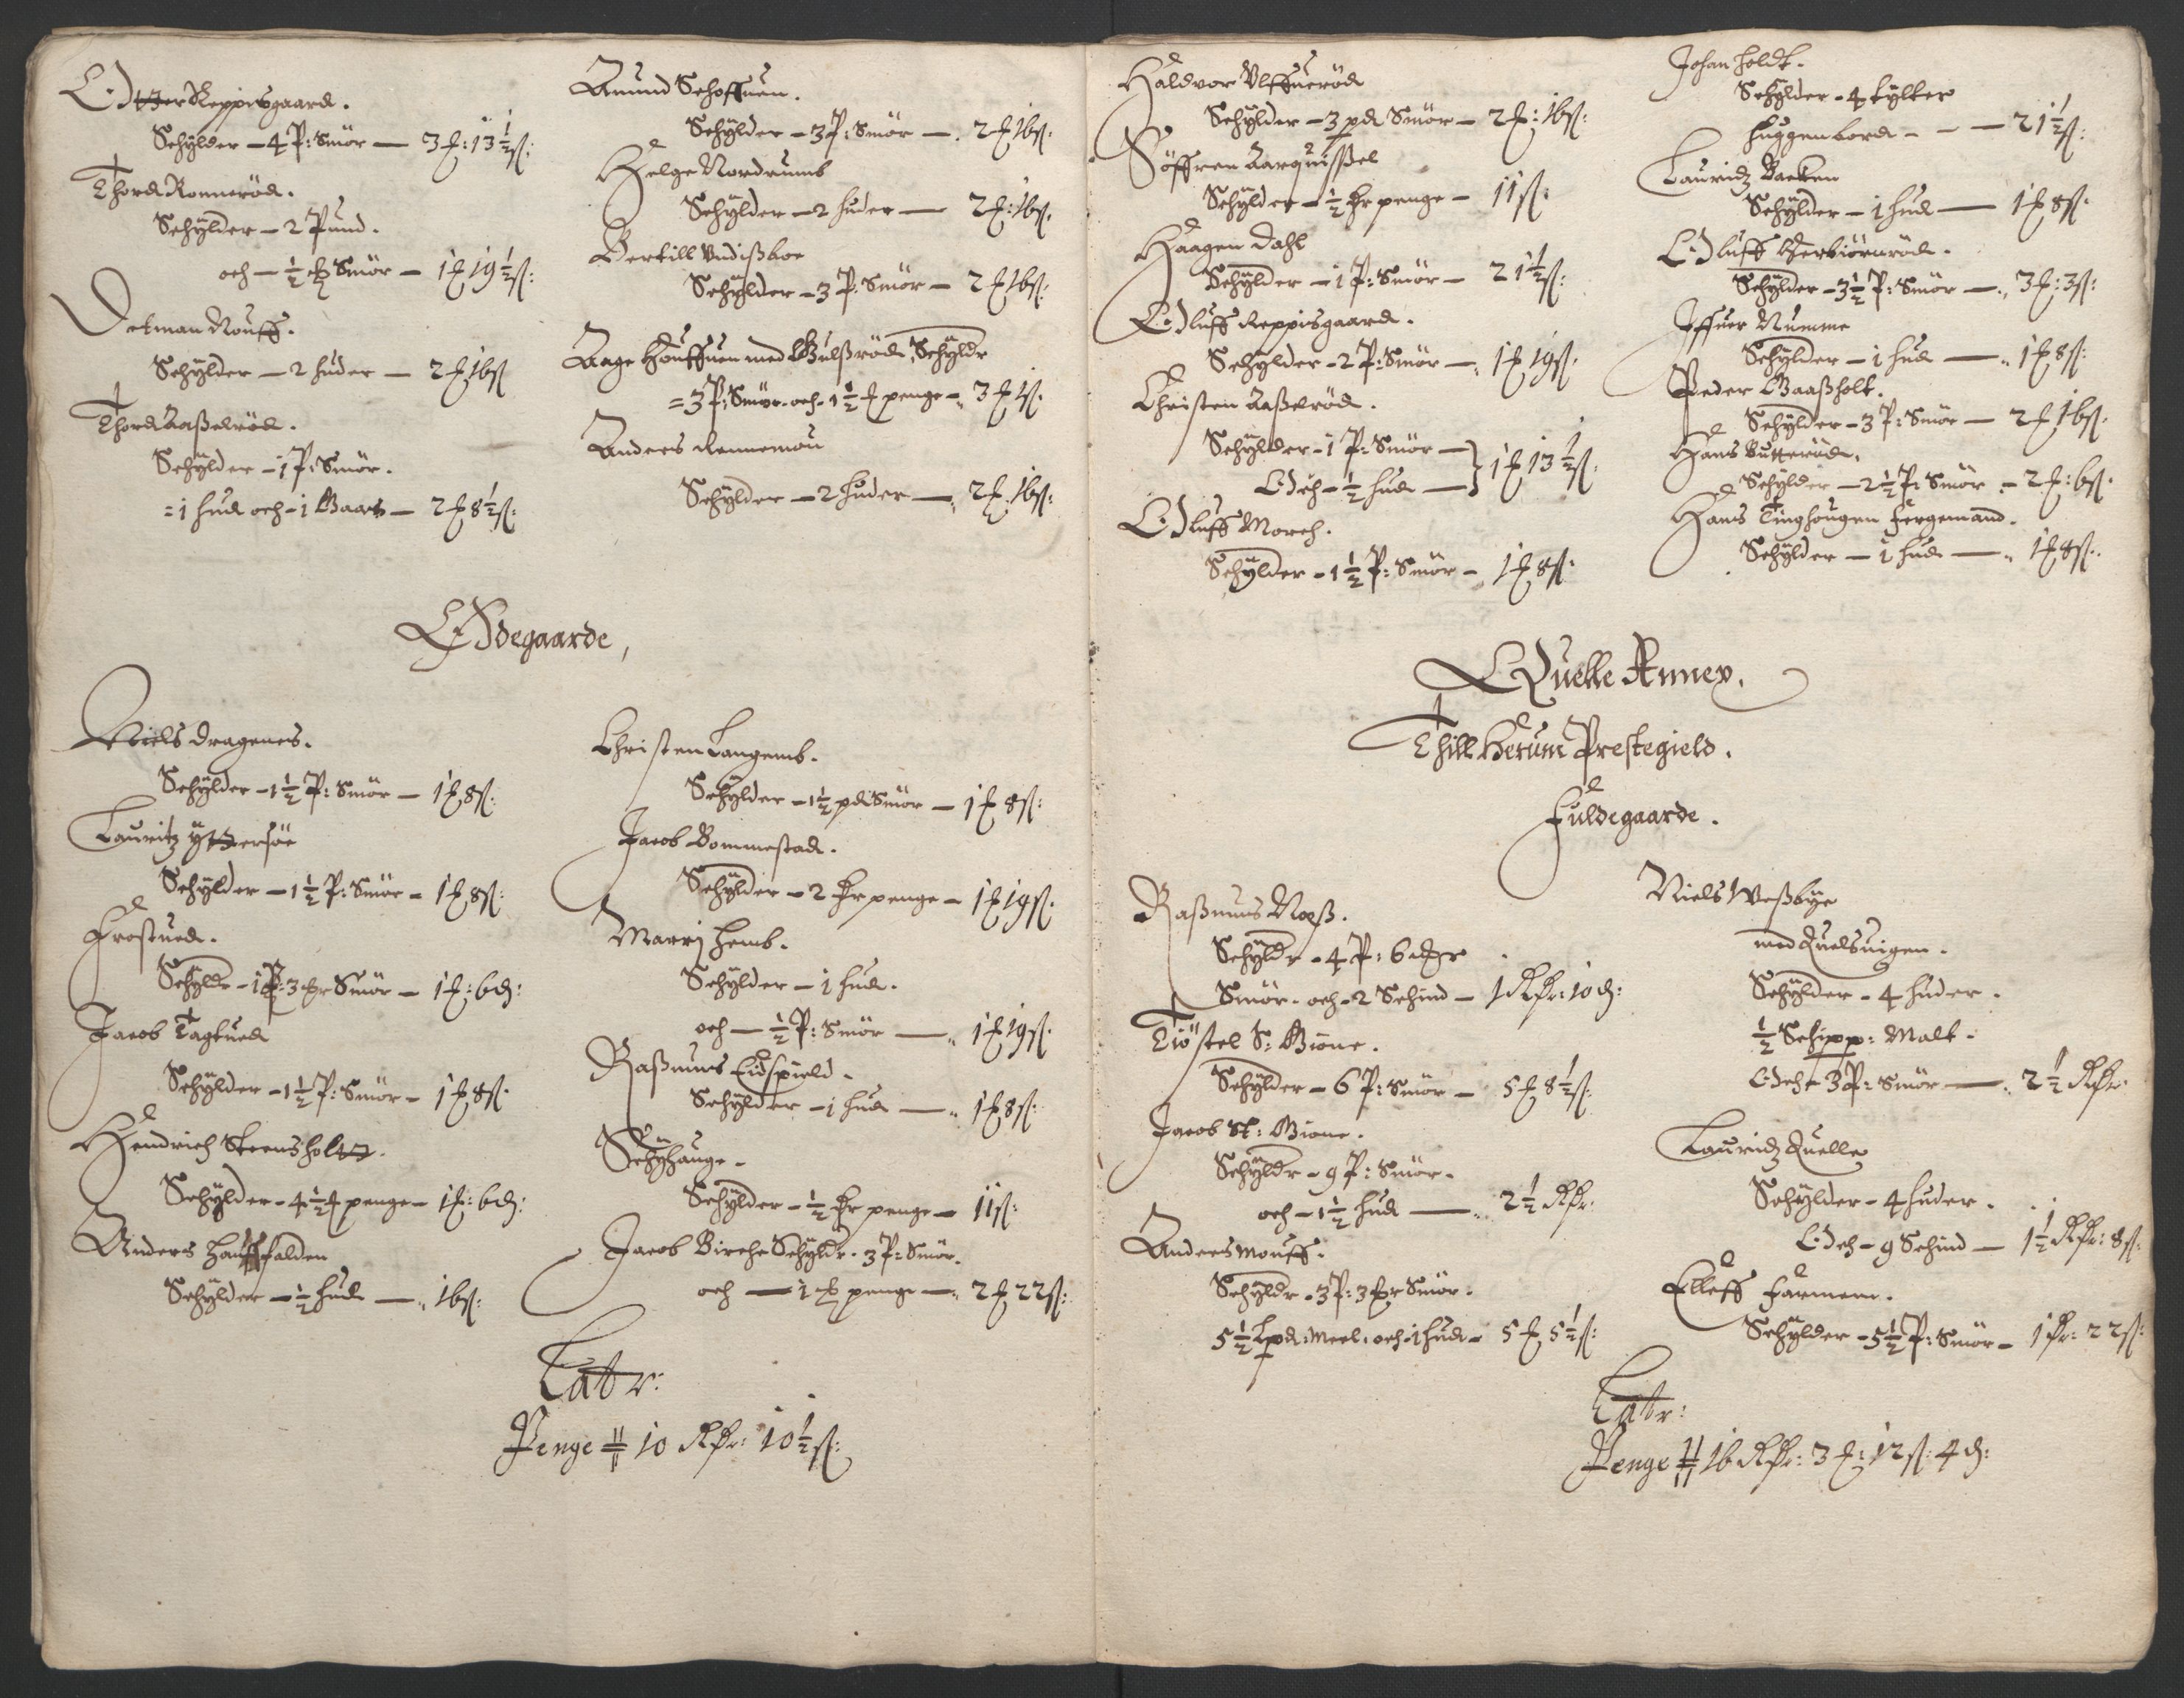 Otter Reppisgaard.
Schÿlder – 4 P: Smör — 3 ₰: 13½ ß:
Thord Ronneröd.
Schÿlder – 2 Pund.
och – ½ Smör – 1 ₰ 19½ ß:
Detman Rouff.
Schÿlder – 2 huder – 2 ₰ 16 ß
Thord Aaßelröd.
Schÿlder – 1 P: Smör.
= 1 hud och – 1 – 2 ₰ 8½ ß:
Amund Schoffuen.
Schÿlder – 3 P: Smör — 2 ₰ 16 ß:
Helge Nordrumb
Schÿlder – 2 huder — 2 ₰: 16 ß.
Bertill Vndißboe
Schÿlder – 3 P: Smör – 2 ₰ 16 ß:
Aage Houffuen med Gulßröd, Schÿldr
= 3 P: Smör och 1½ penge – 3 ₰ 4 ß.
Anders Rennemou
Schÿlder – 2 huder — 2 ₰ 16 ß:
Ødegaarde,
Niels Dragenes.
Schÿlder – 1½ P: Smör – 1 ₰ 8 ß:
Lauritz ÿttersöe
Schÿlder – 1½ P: Smör – 1 ₰ 8 ß:
Frostued.
Schÿldr – 1 P: 3 Smör – 1 ₰: 6 d:
Jacob Tagtued
Schÿlder – 1½ P: Smör – 1 ₰ 8 ß.
Hendrich Steensholt.
Schÿlder – 4½ penge – 1 ₰: 6 d:
Anders Hauffalden
Schÿlder – ½ hud — 16 ß:
Christen Langemb.
Schÿlder – 1½ pd Smör – 1 ₰ 8 ß:
Jacob Bommestad.
Schÿlder – 2 penge – 1 ₰ 19 ß.
Marrj Hemb.
Schÿlder – 1 hud.
och – ½ P: Smör — 1 ₰ 19 ß.
Raßmus Eidspield.
Schÿlder – 1 hud — 1 ₰ 8 ß:
Schÿhauge.
Schÿlder – ½ penge – 11 ß:
Jacob Birche Schÿldr. 3 P: Smör.
och — 1 penge — 2 ₰ 22 ß:
Latr:
Penge 10 Rdr: 10½ ß:
Haldvor Vlffueröd
Schÿlder – 3 pd Smör – 2 ₰: 16 ß:
Söffren Aarquißel
Schÿlder – ½ penge – 11 ß:
Haagen Dahl
Schÿlder – 1 P: Smör – 21½ ß:
Oluff Reppisgaard.
Schÿlder – 2 P: Smör – 1 ₰ 19 ß.
Christen Aaßeröd.
Schÿlder – 1 P: Smör —
Och – ½ hud — } 1 ₰ 13½ ß:
Oluff Morch.
Schÿlder – 1½ P: Smör – 1 ₰ 8 ß:
Johan Holdt.
Schÿlder – 4 tylter
huggenbord – – – 21½ ß:
Lauridz Backen
Schÿlder – 1 hud — 1 ₰ 8 ß.
Oluff Herbiörnröd.
Schÿlder – 3½ P: Smör — 3 ₰: 3 ß:
Iffuer Numme
Schÿlder – 1 hud — 1 ₰ 8 ß:
Peder Gaaßholt.
Schÿlder – 3 P: Smör — 2 ₰ 16 ß.
Hans Butteröd.
Schÿlder – 2½ P: Smör – 2 ₰: 6 ß.
Hans Tinghougen fergemand.
Schÿlder – 1 hud — 1 ₰ 8 ß.
Quelle Annex.
Thill Hetum Prestegield.
Fuldegaarde.
Raßmus Neß.
Schÿldr – 4 P: 6
Smör och – 2 Schind – 1 Rdr: 10 d:
Tiöstel S: Giöne.
Schÿlder – 6 P: Smör – 5 ₰ 8½ ß.
Jacob St: Giöne.
Schÿldr – 9 P: Smör.
och – 1½ hud — 2½ Rdr
Anders Mouff.
Schÿldr – 3 P: 3 Smör.
5½ Lpd: Meel och 1 hud – 5 ₰ 5½ ß:
Niels Weßbÿe
med Quelsuigen.
Schÿlder – 4 huder.
½ Schipp: Malt.
Och – 3 P: Smör — 2½ Rdr
Lauridz Quelle
Schÿlder – 4 huder.
Och – 9 Schind – 1½ Rdr: 8 ß:
Elleff Farmem.
Schÿlder – 5½ P: Smör – 1 dr: 22 ß:
Latr:
Penge 16 Rdr: 3 ₰: 12 ß: 4 d: